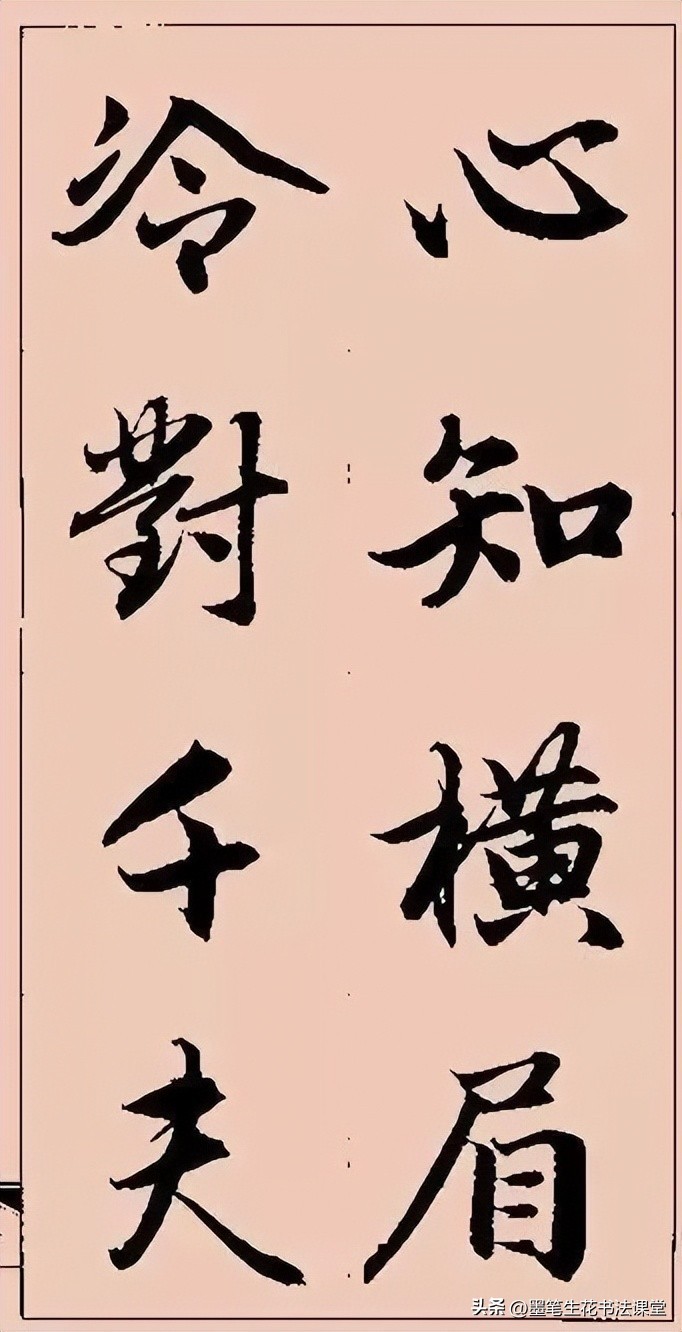 心知橫眉
冷對千夫
头条 @墨笔生花书法课堂